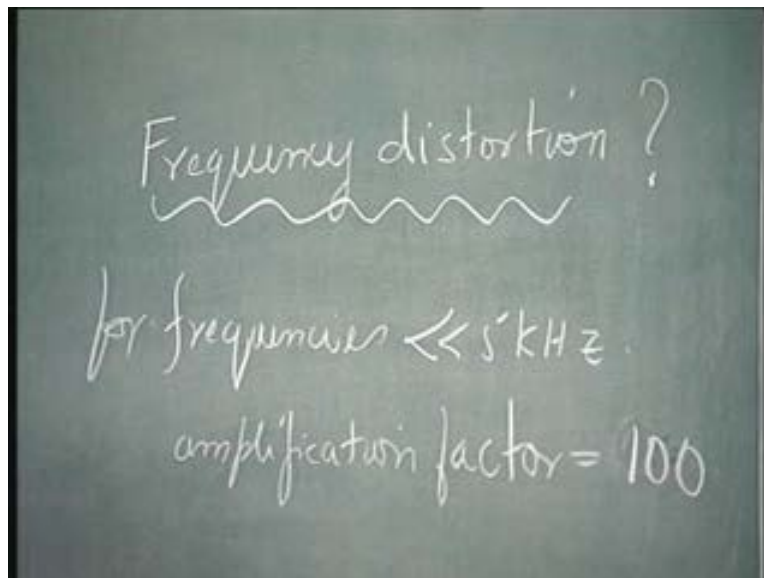 Frequency distortion ?
for frequencies << 5 kHz.
amplification factor = 100